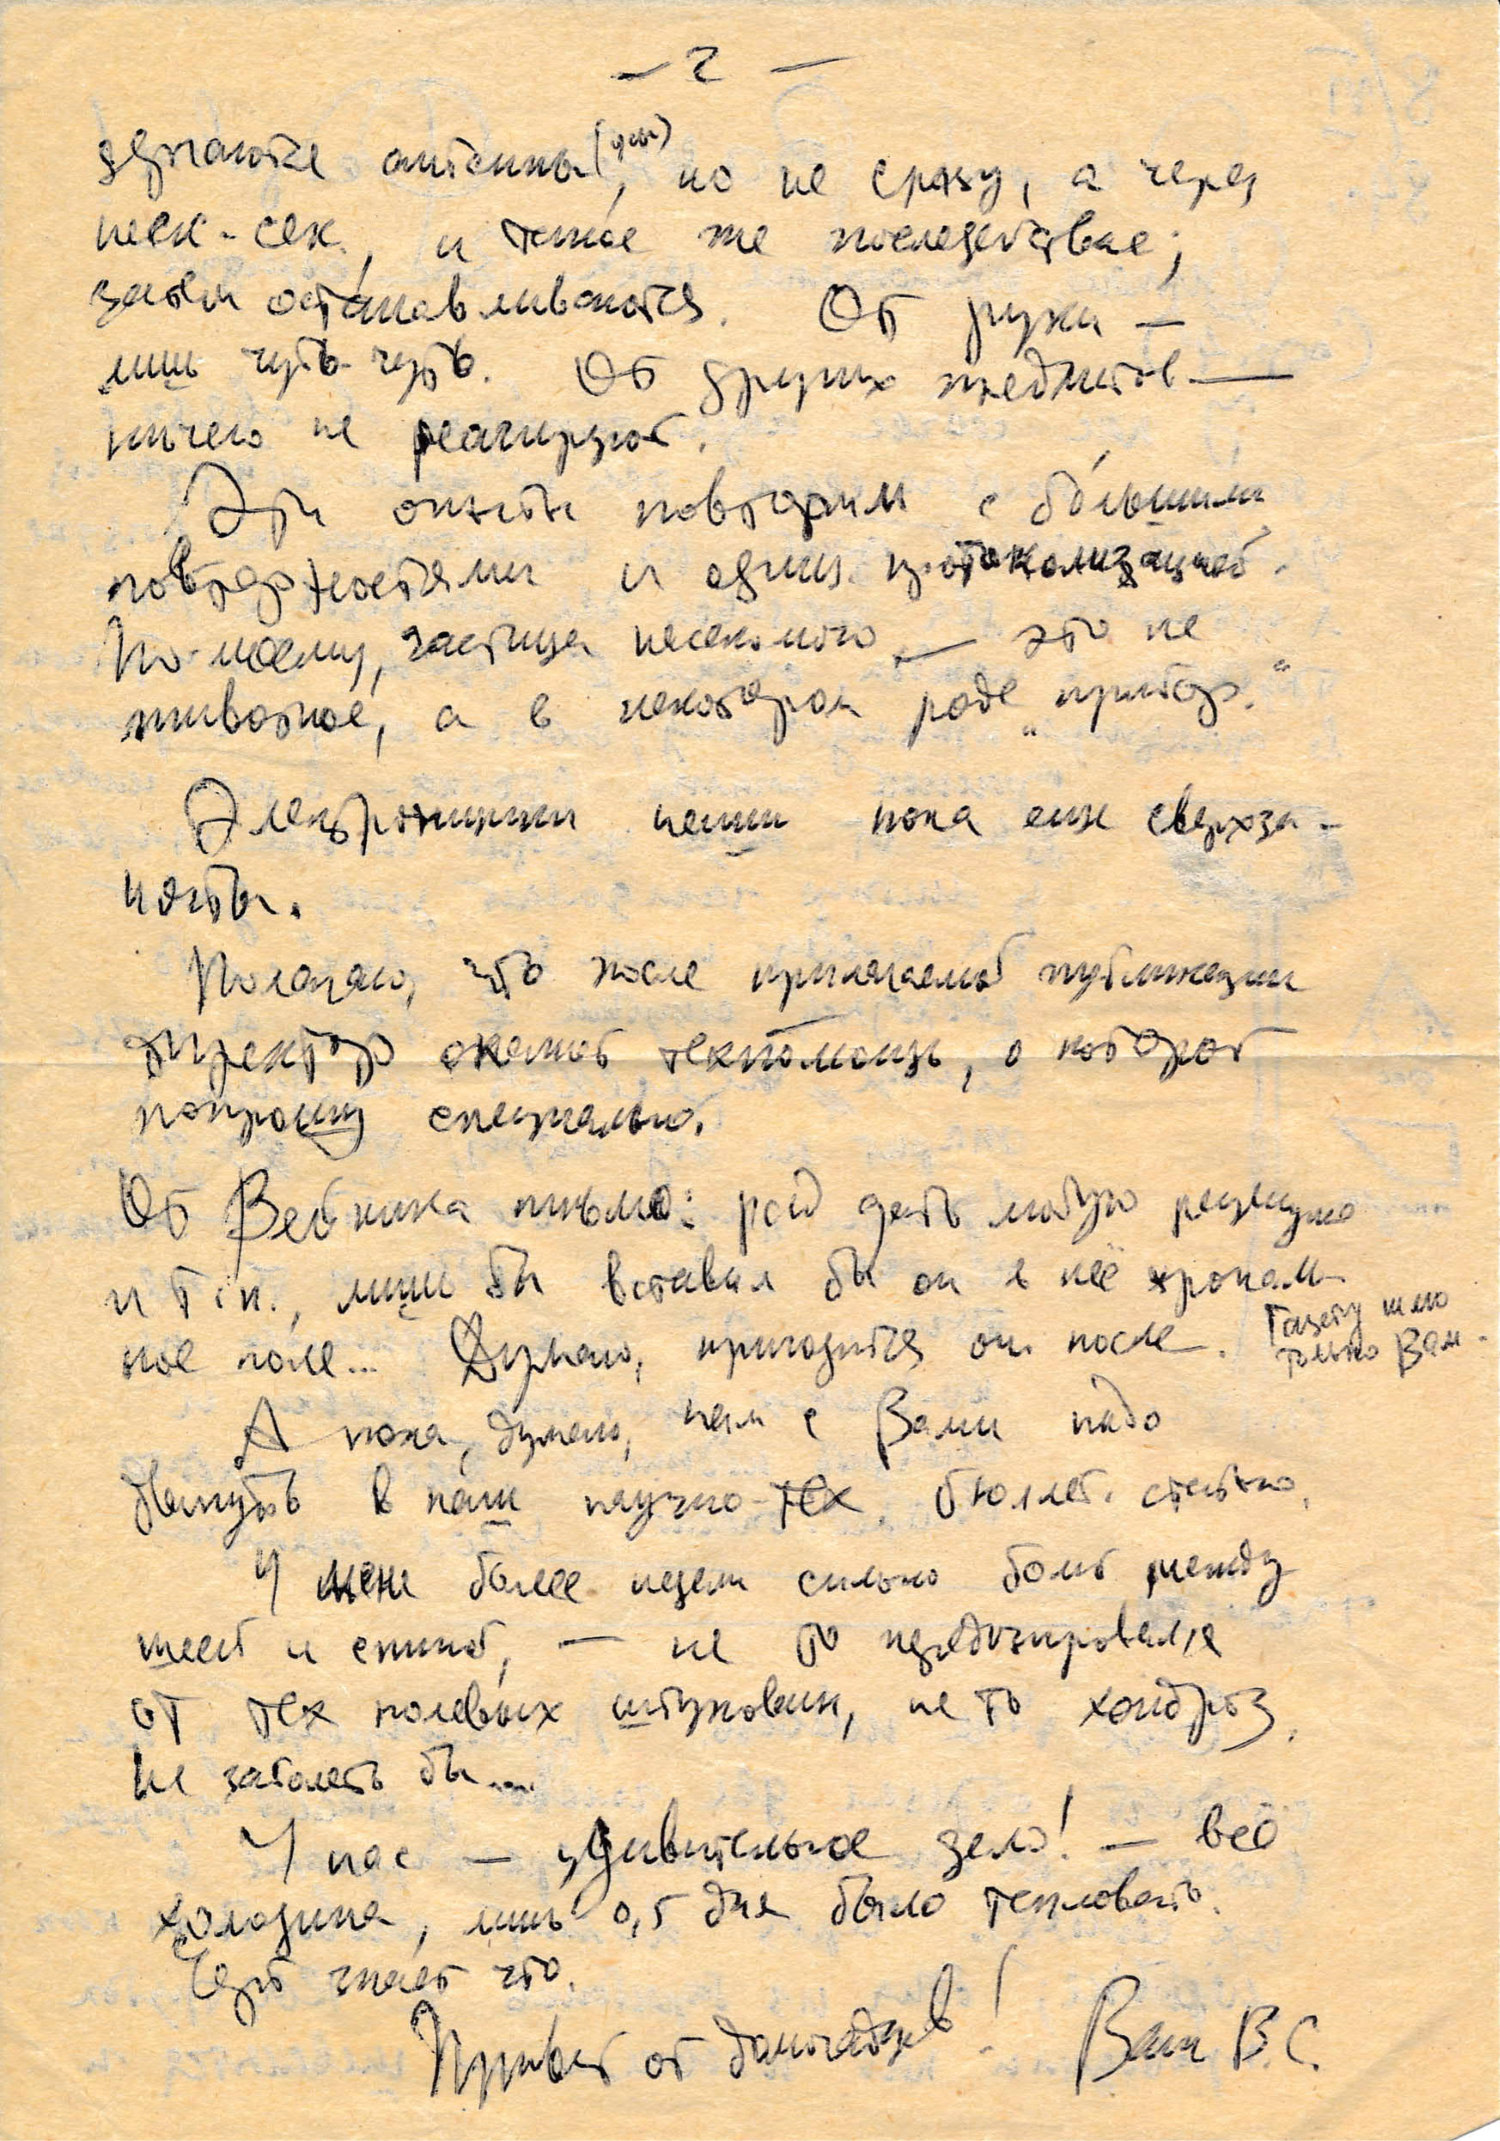 – 2 –
дёргаются антенны (усы), но не сразу, а через
неск. сек., и такое же последействие;
затем останавливаются. От руки —
лишь чуть-чуть. От других предметов —
ничего не реагируют.
Эти опыты повторим с бо́льшими
повторностями и
По-моему, частица насекомого — это не
животное, а в некотором роде „прибор."
Электронщики наши пока ещё сверхза-
няты.
Полагаю, что после прилагаемой публикации
директор окажет техпомощь, о которой
попрошу специально.
От Вейника письмо: рад дать любую рецензию
и т.п., лишь бы вставил бы он в неё хрональ-
ное поле... Думаю, пригодится он после.
Газету шлю
только Вам.
А пока, думаю, нам с Вами надо
в наш научно-тех. бюллет. статью.
У меня более недели сильно болит между
шеей и спиной, — не то передозировался
от тех полевых штуковин, не то хондроз.
Не заболеть бы...
У нас — удивительное дело! — всё
холодина, лишь 0,5 дня было тепловато.
Чёрт знает что.
Привет от домочадцев! Ваш В.С.